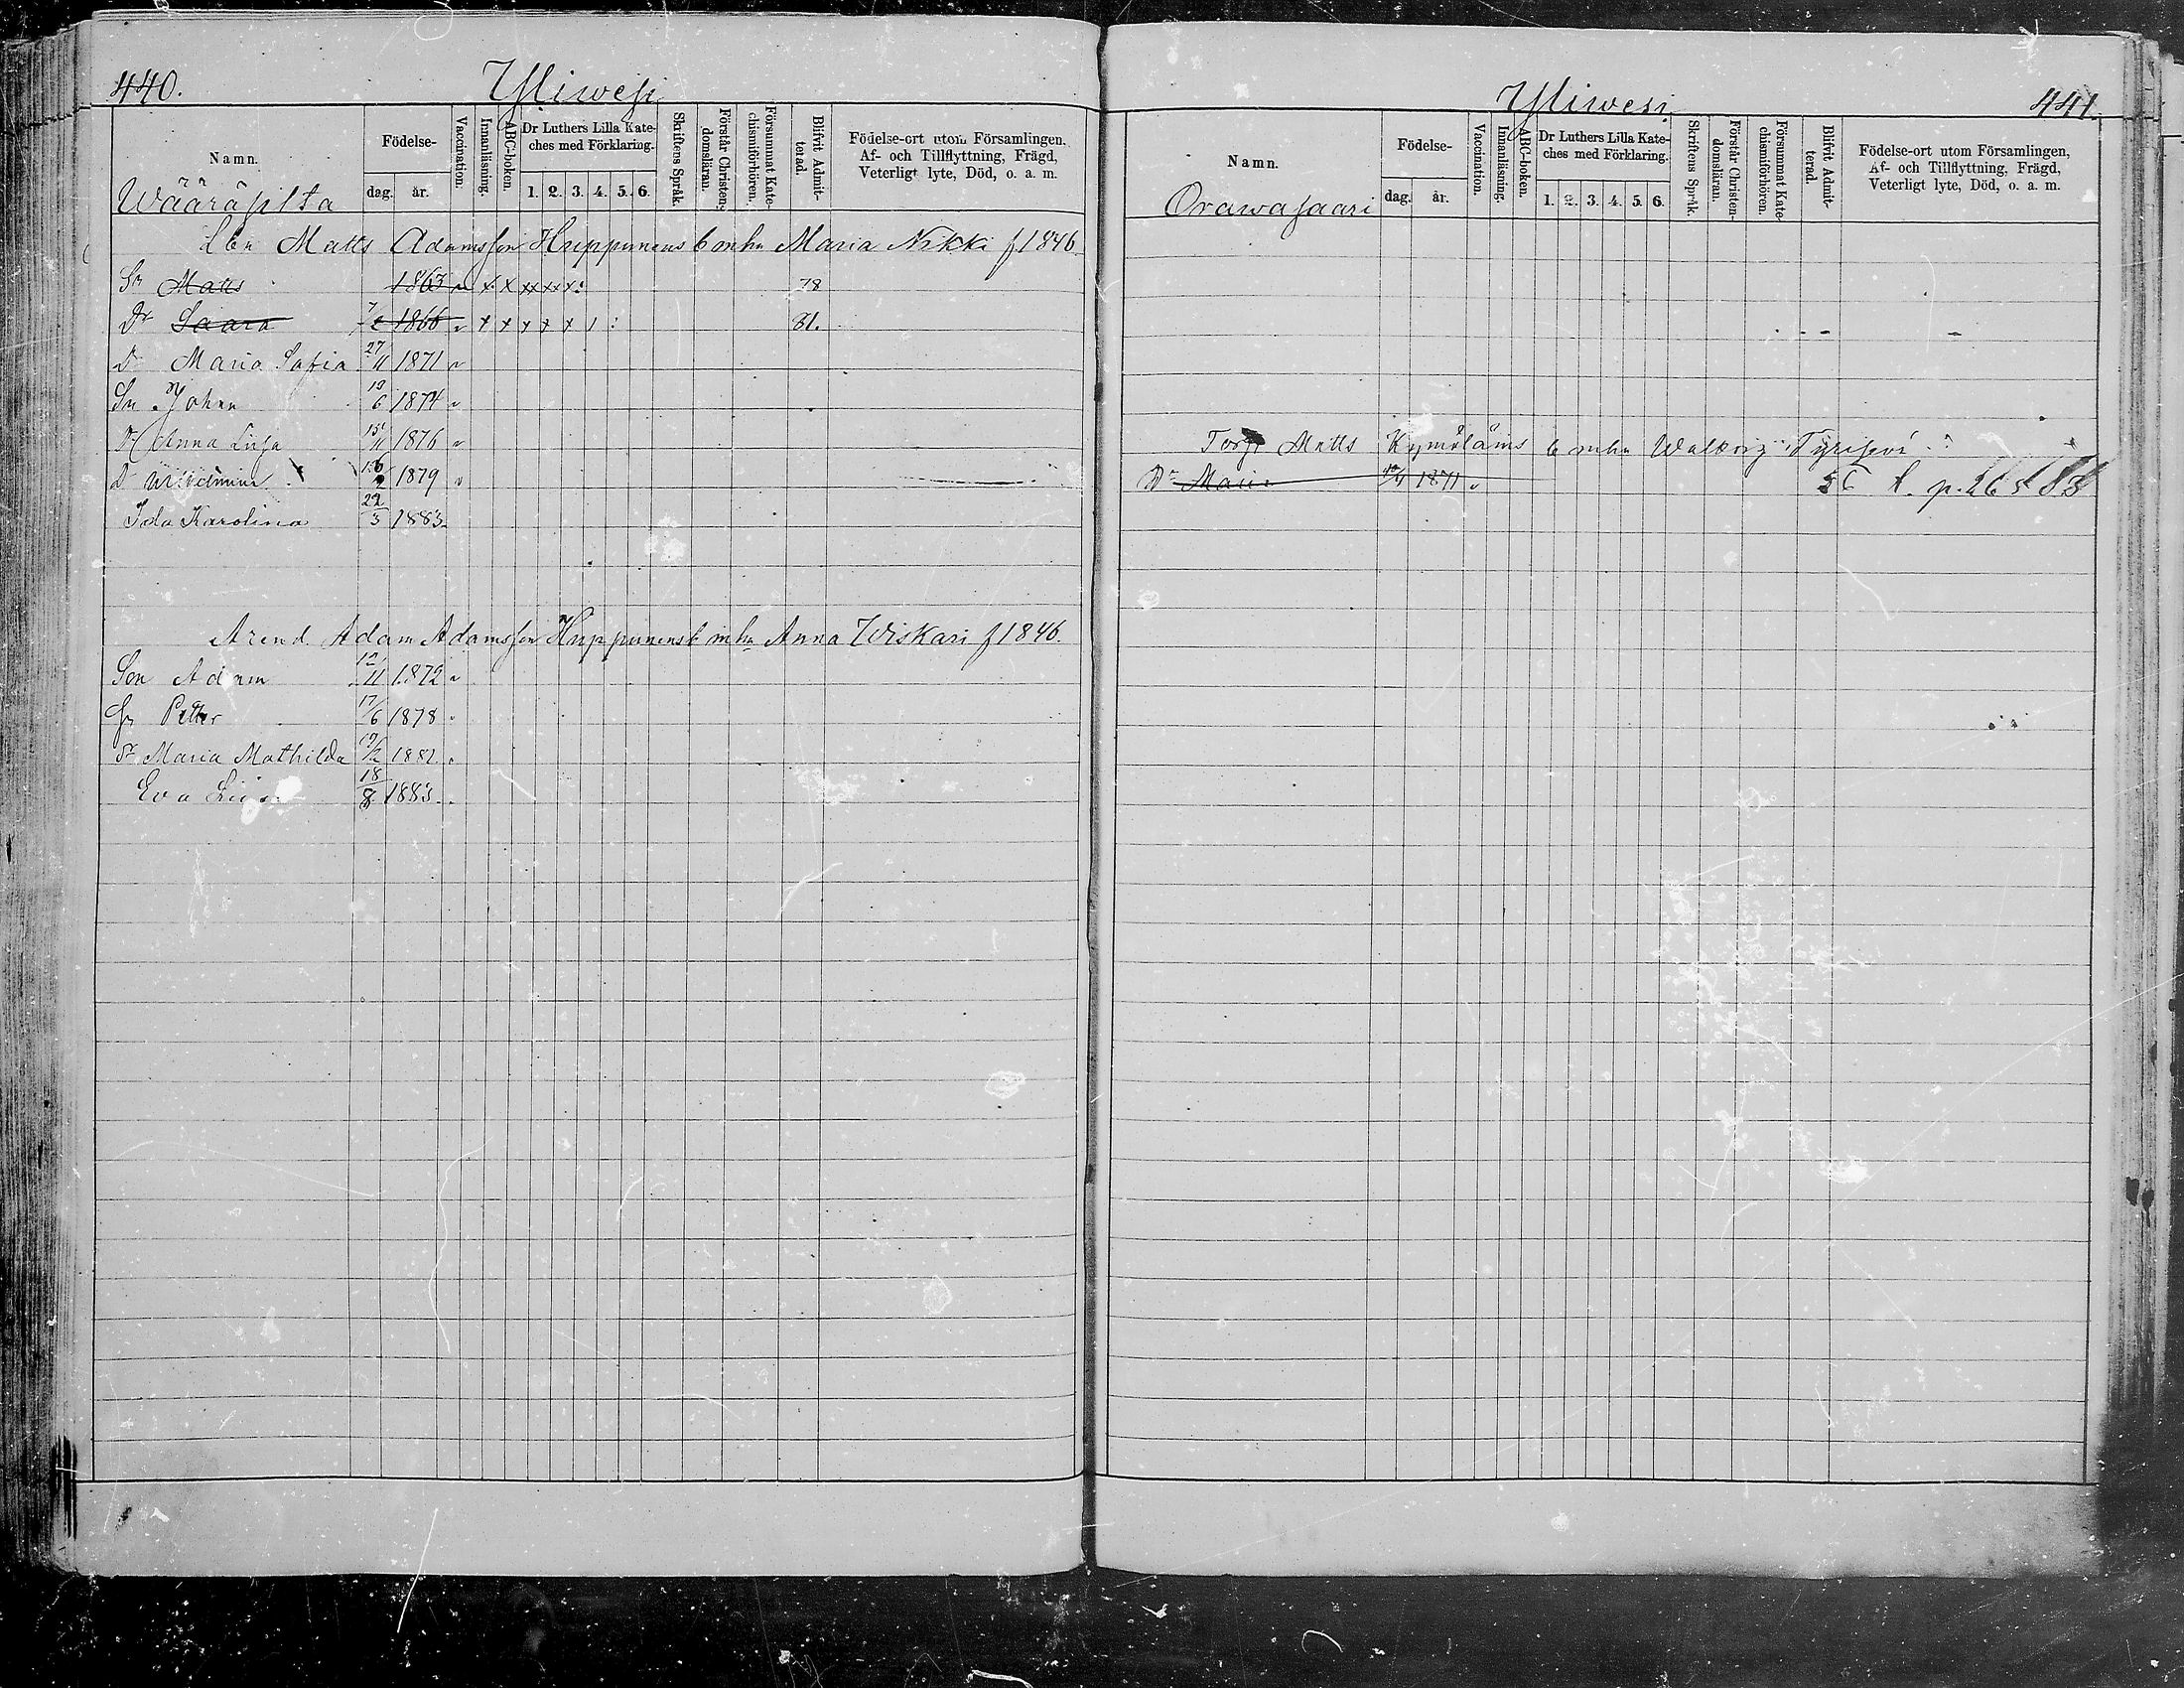 440. Yliwesi
Namn. Födelse- dag. år. Vaccination. Innanläsning. ABC-boken. Dr Luthers Lilla Kateches med Förklaring. 1. 2. 3. 4. 5. 6. Skriftens Språk. Förstår Christendomsläran. Försummat Katechismiförhören. Blifvit Admitterad. Födelse-ort utom Församlingen, Af- och Tillflyttning, Frägd, Veterligt lyte, Död, o. a. m.
Wääräsilta
Matts Adamsson Huppunens mhu Maria Nikki f 1846
Sn Matts 1863 x x x x x x 78
Dr Saara 1866 x x x x x 81.
Dr Maria Sofia 27/11 1871
Sn Johan 19/6 1874
Dr Anna Liisa 15/11 1876
Dr Wilhelmina 1879
Ida Karolina 22/3 1883.
Arend. Adam Adamsson Huppunens mhu Anna Wiskari f 1846.
Son Adam 12/11 1872
Sn Petter 17/6 1878
Dr Maria Mathilda 19/2 1882
Eva Liisa 18/8 1883.
Yliwesi 441
Namn. Födelse- dag. år. Vaccination. Innanläsning. ABC-boken. Dr Luthers Lilla Kateches med Förklaring. 1. 2. 3. 4. 5. 6. Skriftens Språk. Förstår Christendomsläran. Försummat Katechismiförhören. Blifvit Admitterad. Födelse-ort utom Församlingen, Af- och Tillflyttning, Frägd, Veterligt lyte, Död, o. a. m.
Orawasaari
Torp. Matts Kymöläins mhu Walborg
Dr Maria 1871